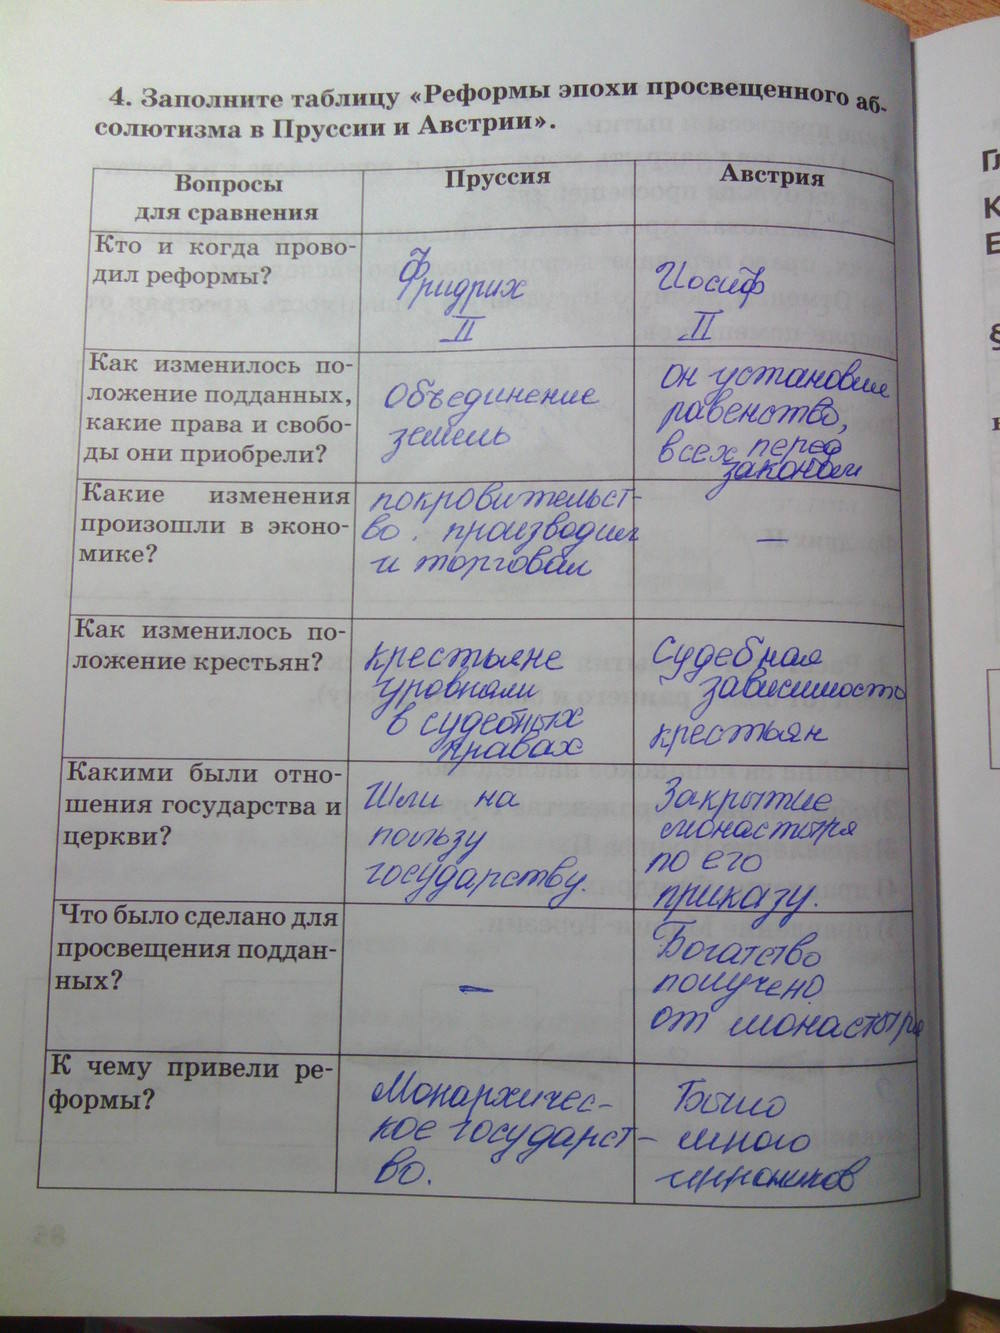 4. Заполните таблицу «Реформы эпохи просвещенного аб-
солютизма в Пруссии и Австрии».
Вопросы
для сравнения
Пруссия
Австрия
Кто и когда прово-
дил реформы?
Фридрих
II
Иосиф
II
Как изменилось по-
ложение подданных,
какие права и свобо-
ды они приобрели?
Объединение
земель
он установил
равенство,
всех перед
законом
Какие изменения
произошли в эконо-
мике?
покровительст-
во. производил
и торговал
—
Как изменилось по-
ложение крестьян?
крестьяне
уровнями
в судебных
правах
Судебная
зависимость
крестьян
Какими были отно-
шения государства и
церкви?
Шли на
пользу
государству
Закрытие
монастыря
по его
приказу.
Что было сделано для
просвещения поддан-
ных?
–
Богатство
получено
от монастыря
К чему привели ре-
формы?
Монархичес-
кое государст-
во.
Было
много